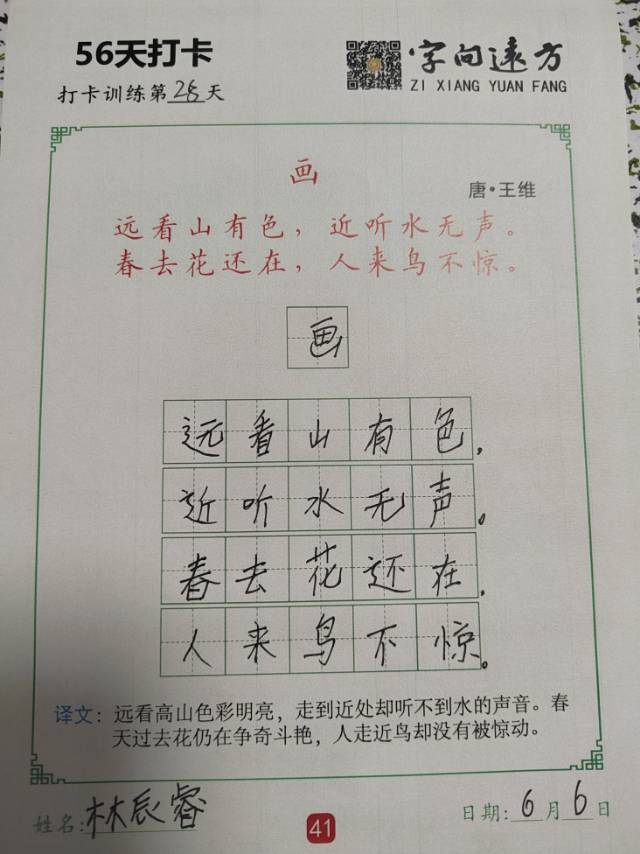 56天打卡
字向远方
ZI XIANG YUAN FANG
打卡训练第28天
画
唐·王维
远看山有色，近听水无声。
春去花还在，人来鸟不惊。
画
远看山有色，
近听水无声。
春去花还在，
人来鸟不惊。
译文：远看高山色彩明亮，走到近处却听不到水的声音。春
天过去花仍在争奇斗艳，人走近鸟却没有被惊动。
姓名:林辰睿
41
日期:6月6日